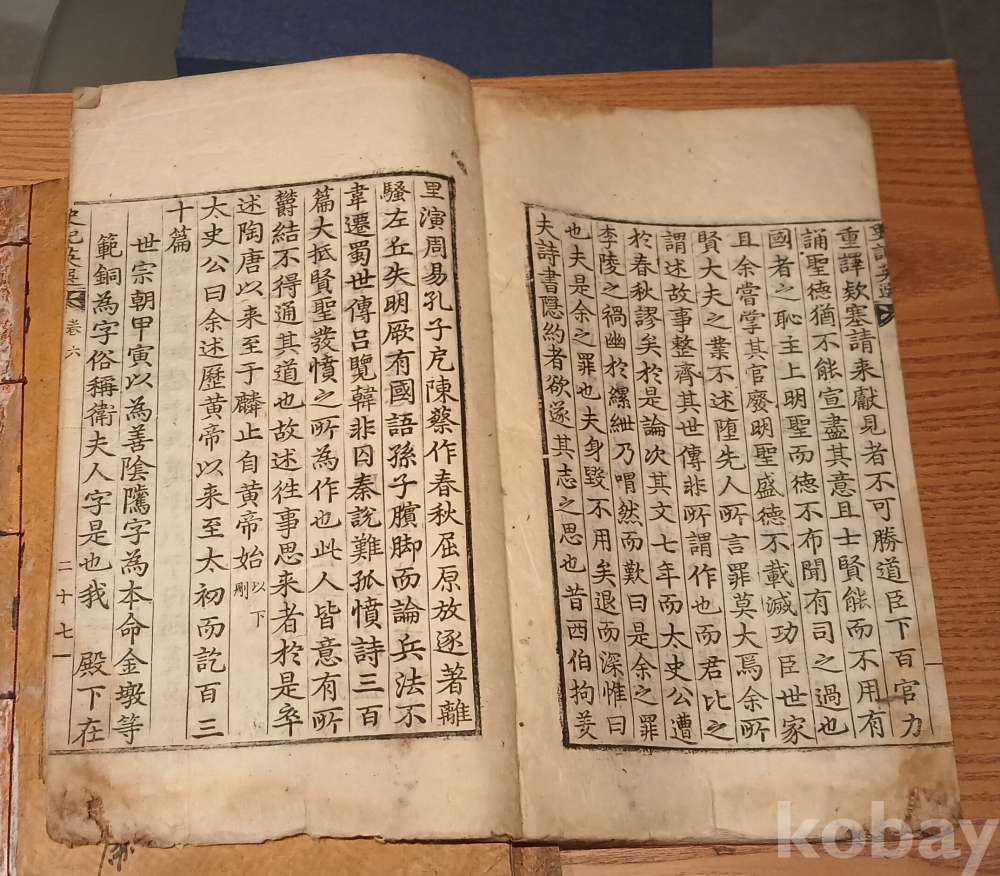 史記英選
重譯欵塞請来獻見者不可勝道臣下百官力
誦聖德猶不能宣盡其意且士賢能而不用有
國者之恥主上明聖而德不布聞有司之過也
且余嘗掌其官廢明聖盛德不載滅功臣世家
賢大夫之業不述堕先人所言罪莫大焉余所
謂述故事整齊其世傳非所謂作也而君比之
於春秋謬矣於是論次其文七年而太史公遭
李陵之禍幽於縲紲乃喟然而歎曰是余之罪
也夫是余之罪也夫身毀不用矣退而深惟曰
夫詩書隱約者欲遂其志之思也昔西伯拘羑
里演周易孔子戹陳蔡作春秋屈原放逐著離
騷左丘失明厥有國語孫子臏脚而論兵法不
韋遷蜀世傳呂覽韓非囚秦說難孤憤詩三百
篇大抵賢聖發憤之所為作也此人皆意有所
欝結不得通其道也故述徃事思来者於是卒
述陶唐以来至于麟止自黄帝始以下刪
太史公曰余述歷黄帝以来至太初而訖百三
十篇
世宗朝甲寅以為善陰騭字為本命金墩等
範銅為字俗稱衛夫人字是也我 殿下在
史記英選 卷六 二十七
kobay